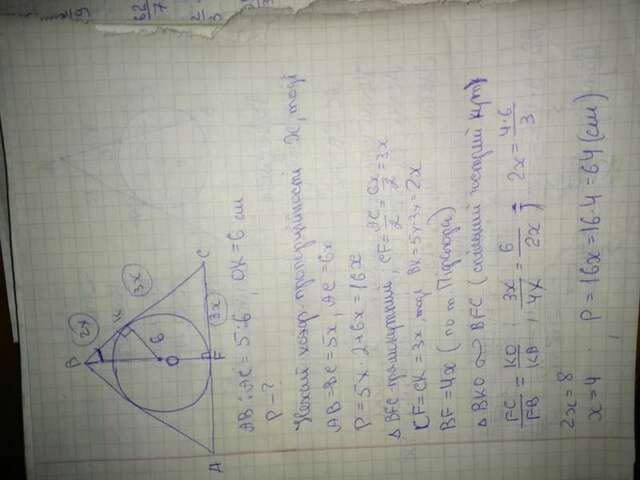 B
2x
K
3x
6
O
A
F
3x
C
AB : AC = 5 : 6, OK = 6 см
P - ?
Нехай коеф. пропорційності x, тоді
AB = BC = 5x, AC = 6x
P = 5x · 2 + 6x = 16x
△ BFC - прямокутний, CF = AC/2 = 6x/2 = 3x
CF = CK = 3x, тоді BK = 5x-3x = 2x
BF = 4x (по т. Піфагора)
△ BKO ∾ BFC (спільний гострий кут)
FC/FB = KO/KB ; 3x/4x = 6/2x ; 2x = 4·6/3
2x = 8
x = 4 P = 16x = 16·4 = 64 (см)
9
62/7
2/3